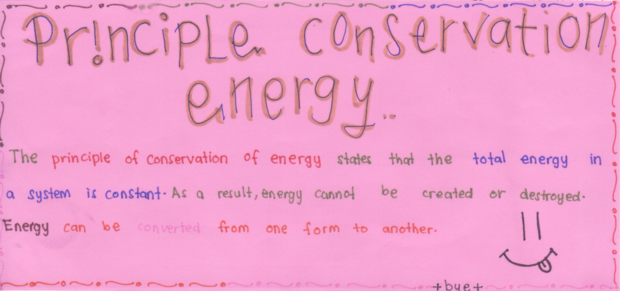 Pr!nciple conservation
energy..
The principle of conservation of energy states that the total energy in
a system is constant. As a result, energy cannot be created or destroyed.
Energy can be converted from one form to another.
+bye+